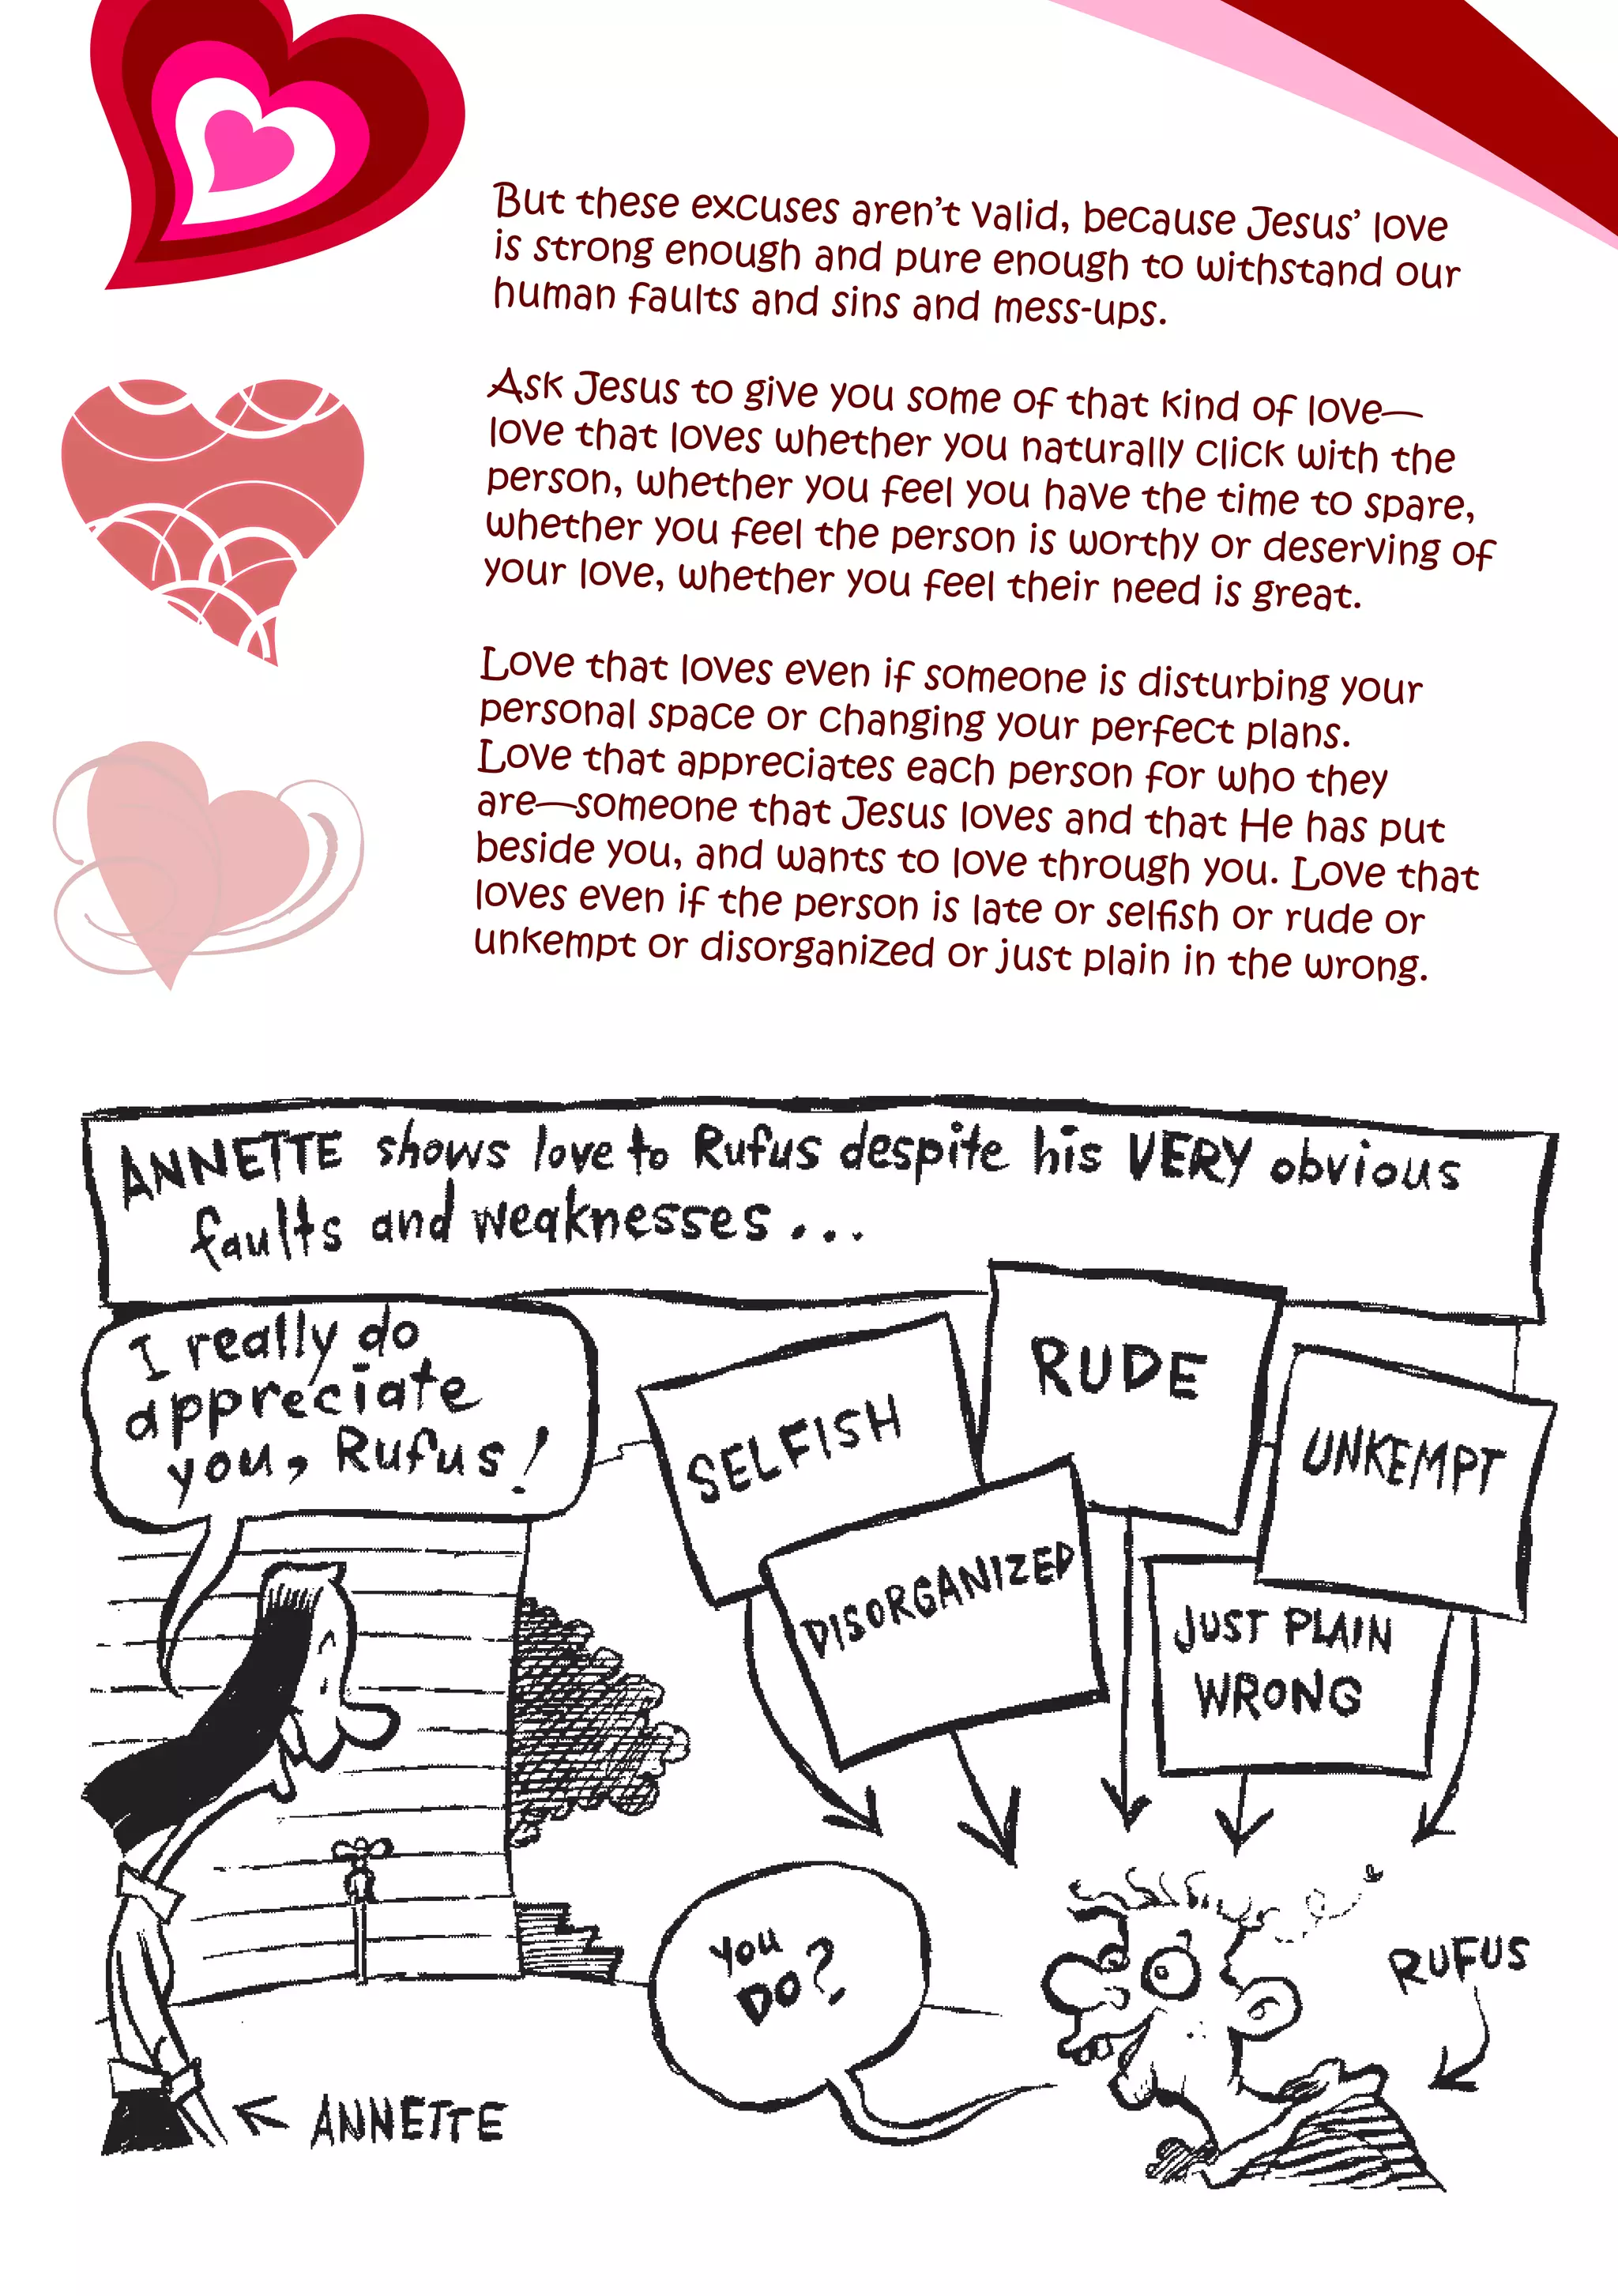 But these excuses aren't valid, because Jesus' love
is strong enough and pure enough to withstand our
human faults and sins and mess-ups.
Ask Jesus to give you some of that kind of love—
love that loves whether you naturally click with the
person, whether you feel you have the time to spare,
whether you feel the person is worthy or deserving of
your love, whether you feel their need is great.
Love that loves even if someone is disturbing your
personal space or changing your perfect plans.
Love that appreciates each person for who they
are—someone that Jesus loves and that He has put
beside you, and wants to love through you. Love that
loves even if the person is late or selfish or rude or
unkempt or disorganized or just plain in the wrong.
ANNETTE shows love to Rufus despite his VERY obvious
faults and weaknesses...
I really do
appreciate
you, Rufus!
SELFISH
RUDE
UNKEMPT
DISORGANIZED
JUST PLAIN
WRONG
YOU
DO?
RUFUS
ANNETTE